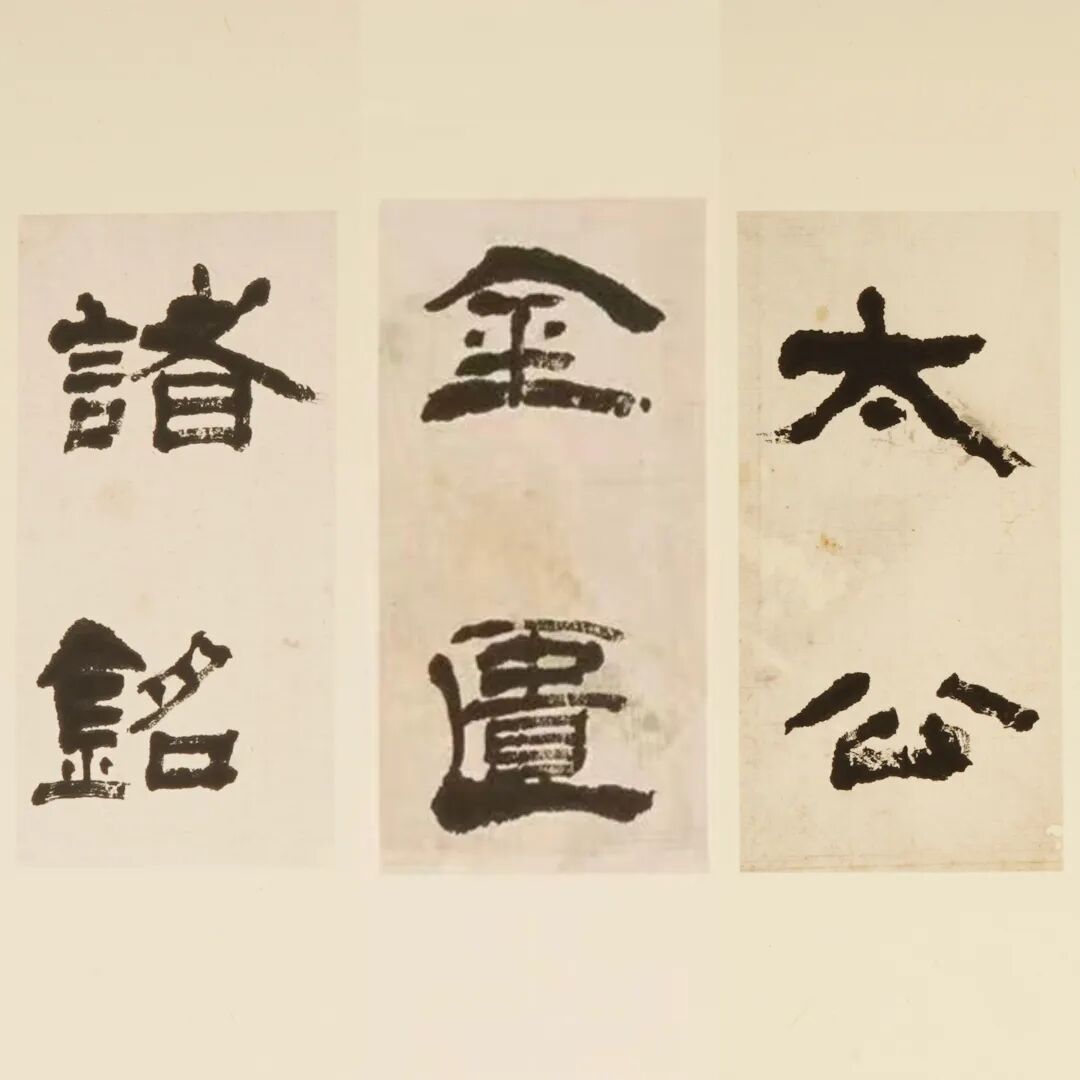 太公
金匱
諸銘